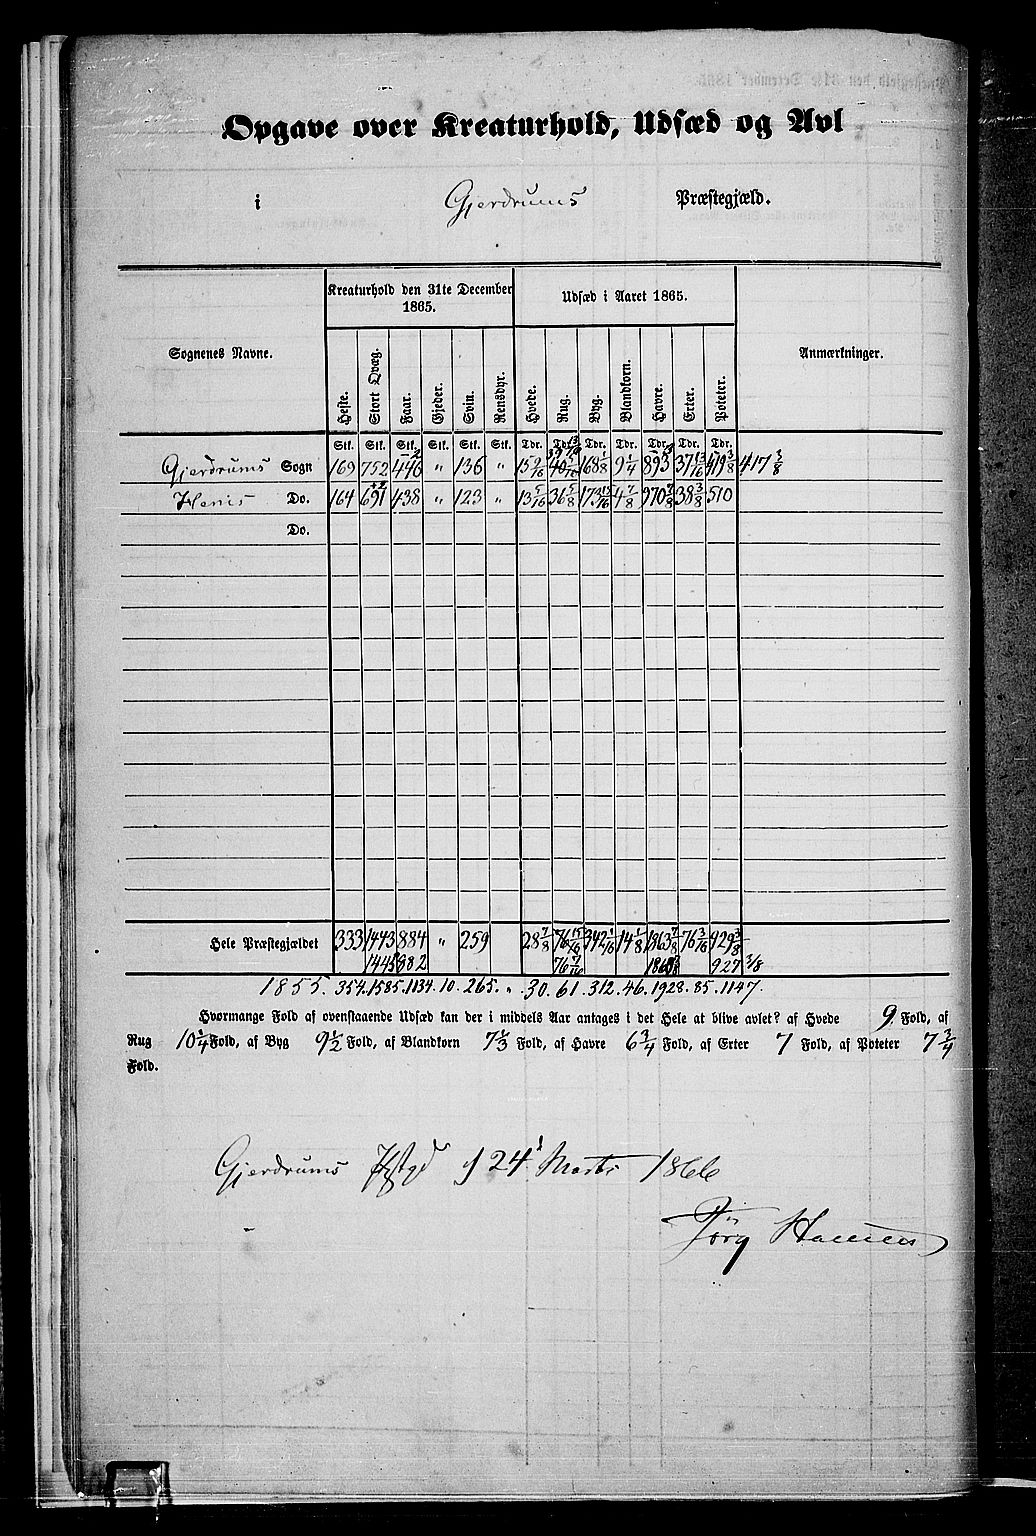 Opgave over Kreaturhold, Udsæd og Avl
i Gjerdrums Præstegjæld.
Sognenes Navne.
Kreaturhold den 31te December 1865.
Udsæd i Aaret 1865.
Anmærkninger.
Heste. Stort Qvæg. Faar. Gjeder. Svin. Rensdyr. Hvede. Rug. Byg. Blandkorn. Havre. Erter. Poteter.
Stk. Stk. Stk. Stk. Stk. Stk. Tdr. Tdr. Tdr. Tdr. Tdr. Tdr. Tdr.
Gjerdrums Sogn 169 752 446 " 136 " 15 9/16 40 5/16 168 1/8 9 1/4 893 37 13/16 419 3/8 417 3/8
Do. 164 691 438 " 123 " 13 5/16 36 5/8 173 15/16 4 7/8 970 7/8 38 3/8 510
Do.
Hele Præstegjældet 333 1443 884 " 259 28 7/8 76 15/16 342 1/16 14 1/8 1863 7/8 76 3/16 929 3/8
1445 882 76 7/16 927 3/8
1855. 354. 1585. 1134. 10. 265. " 30. 61. 312. 46. 1928. 85. 1147.
Hvormange Fold af ovenstaaende Udsæd kan der i middels Aar antages i det Hele at blive avlet? af Hvede 9 Fold, af
Rug 10 1/4 Fold, af Byg 9 1/2 Fold, af Blandkorn 7 1/3 Fold, af Havre 6 3/4 Fold, af Erter 7 Fold, af Poteter 7 3/4
Fold.
Gjerdrums 24 Marts 1866
Jörg Hansen